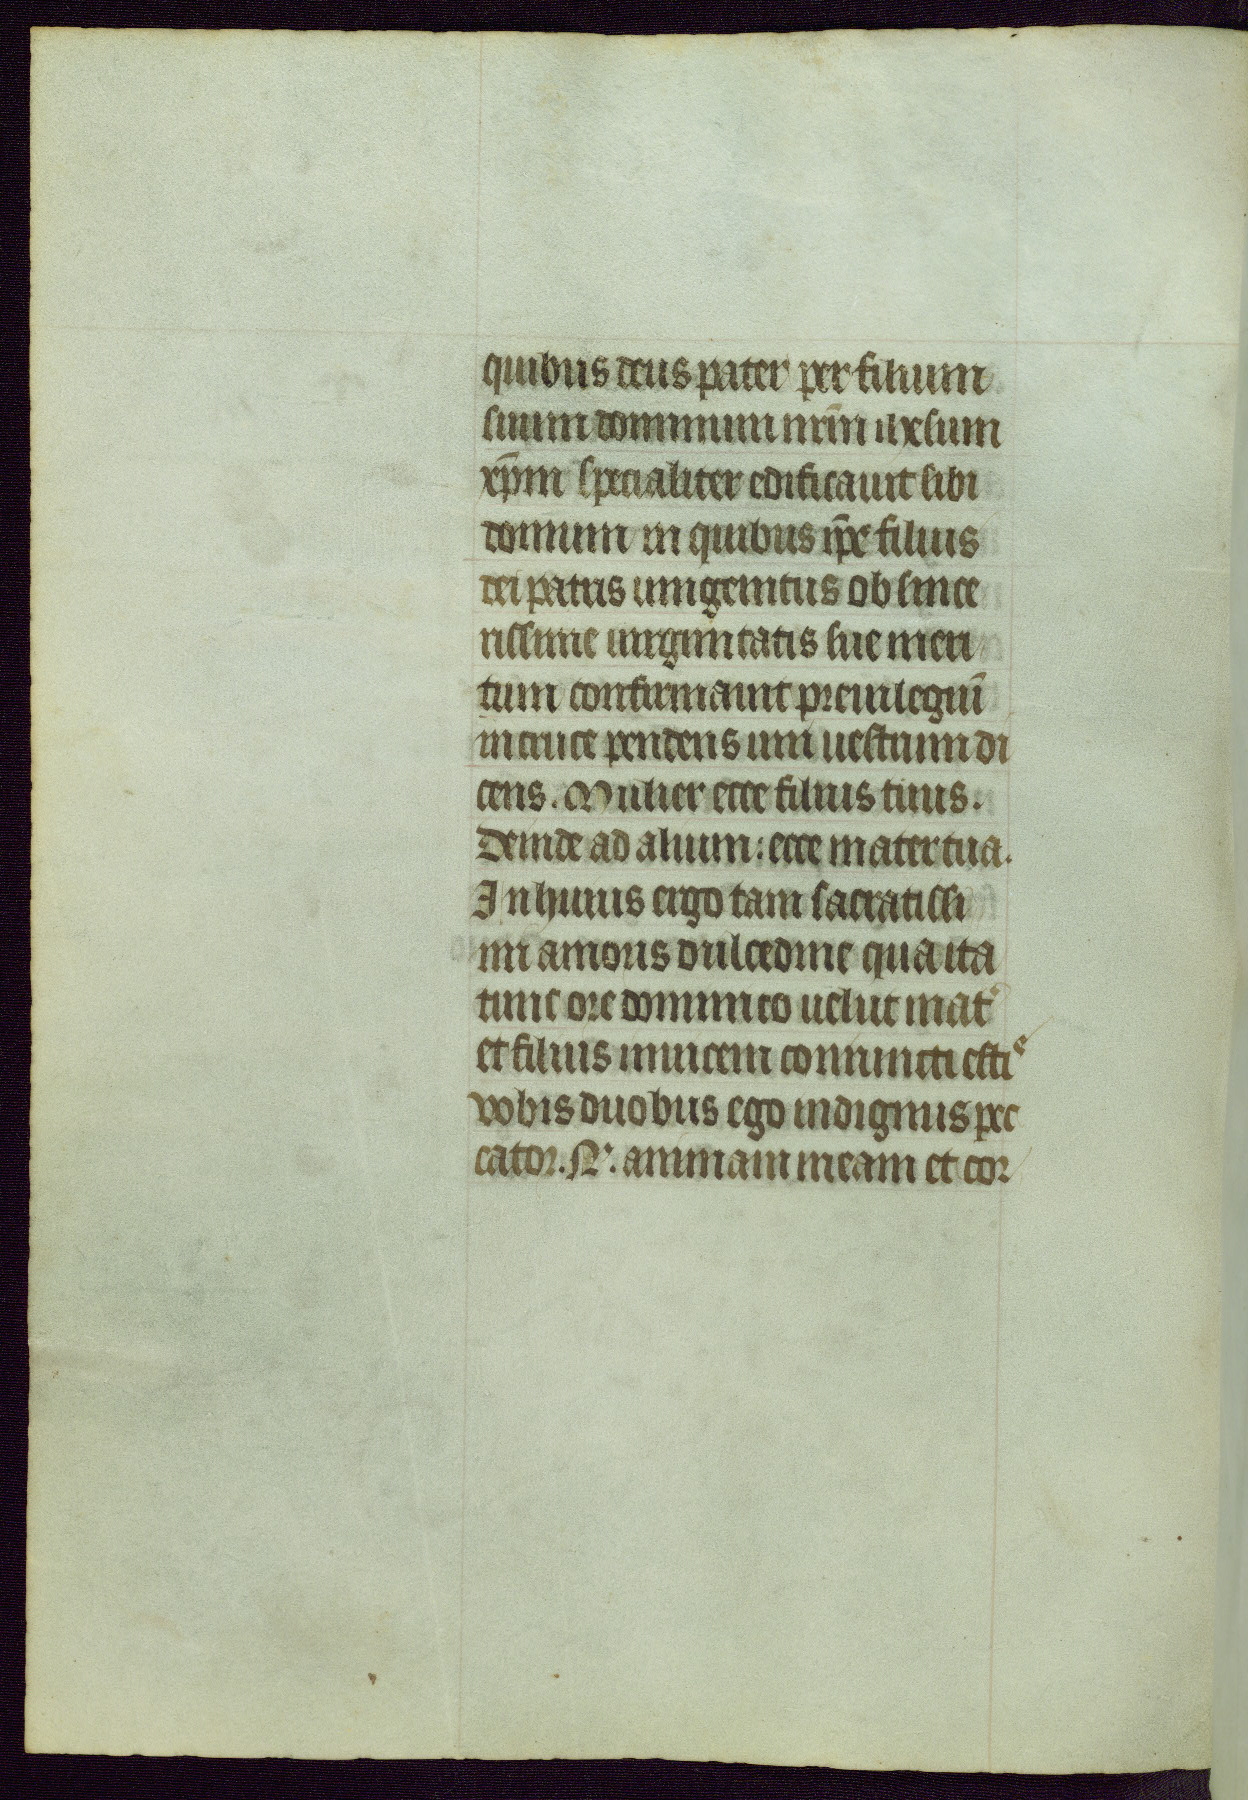 quibus deus pater per filium
suum dominum nr̄m ihesum
xp̄m specialiter edificauit sibi
domum in quibus ip̄e filius
dei patris unigenitus ob since
rissime uirginitatis sue meri
tum confirmauit preuilegiū
in cruce pendens uni uestrum di
cens. Mulier ecce filius tuus.
Deinde ad alium: ecce mater tua.
In huius ergo tam sacratissi
mi amoris dulcedine qua ita
tunc ore dominico uelut mat̉
et filius inuicem coniuncti esti s
vobis duobus ego indignus pec
cator. N. animam meam et cor